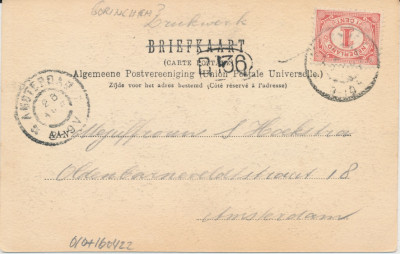 GORINCHEM?
Drukwerk
BRIEFKAART
(CARTE POSTALE)
Algemeene Postvereeniging (Union Postale Universelle.)
Zijde voor het adres bestemd (Côté réservé à l'adresse)
NEDERLAND
1
CENT
136
AMSTERDAM
Mejuffrouw S Hoekstra
Oldenbarneveldtstraat 18
Amsterdam
010+160422